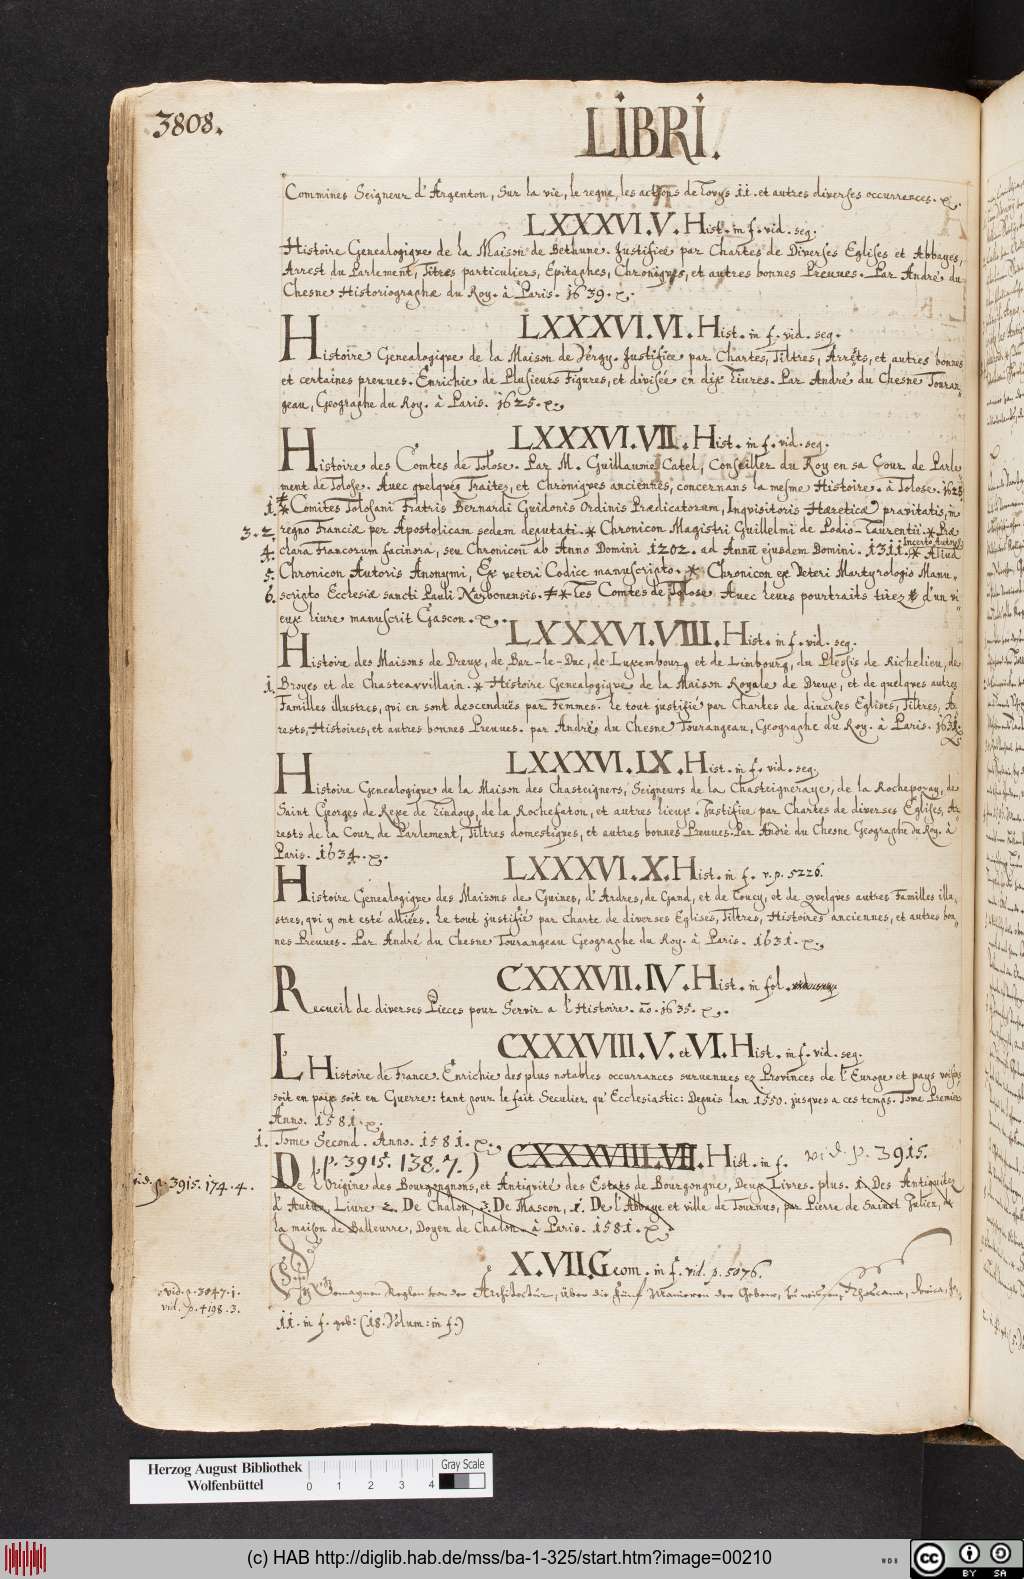 3808.
LIBRI.
Commines Seigneur d'Argenton, Sur la vie, le regne, les actions de Lovys ii. et autres diverses occurrences. x.
LXXXVI.V. Hist. in f. vid. seq.
Histoire Genealogique de la Maison de Bethune. Justifiee par Chartes de Diverses Eglises et Abbayes,
Arrest du Parlement, Titres particuliers, Epitaphes, Chroniques, et autres bonnes Preuues. Par André du
Chesne Historiographe du Roy. à Paris. 1639. x.
LXXXVI.VI. Hist. in f. vid. seq.
Histoire Genealogique de la Maison de Vergy. Justifiee par Chartes, Tiltres, Arrêts, et autres bonnes
et certaines preuues. Enrichie de Plusieurs Figures, et divisée en dix Liures. Par André du Chesne Touran-
geau, Geographe du Roy. à Paris. 1625. x.
LXXXVI.VII. Hist. in f. vid. seq.
Histoire des Comtes de Tolose. Par M. Guillaume Catel, Conseiller du Roy en sa Cour de Parle
ment de Tolose. Avec quelques Traitez, et Chroniques anciennes, concernans la mesme Histoire. à Tolose. 1623
1. * Comites Tolosani Fratris Bernardi Guidonis Ordinis Prædicatorum, Inquisitoris Hæreticæ pravitatis, in
3. 2. regno Franciæ per Apostolicam sedem deputati. * Chronicon Magistri Guillelmi de Podio-Laurentii. * Præ
Incerto Autore
4. clara Francorum facinora, seu Chronicon ab Anno Domini 1202. ad Annū ejusdem Domini. 1311. * Aliud
5. Chronicon Autoris Anonymi, Ex veteri Codice manuscripto. * Chronicon ex Veteri Martyrologio Manu-
6. scripto Ecclesiæ sancti Pauli Narbonensis. ** Les Comtes de Tolose Avec leurs pourtraits tirez d'un vi
eux liure manuscrit Gascon. x.
LXXXVI.VIII. Hist. in f. vid. seq.
Histoire des Maisons de Dreux, de Bar-le-Duc, de Luxembourg et de Limbourg, du Plessis de Richelieu, de
1. Broyes et de Chasteauvillain. * Histoire Genealogique de la Maison Royale de Dreux, et de quelques autres
Familles illustres, qui en sont descenduës par Femmes. Le tout justifié par Chartes de diverses Eglises, Tiltres, Ar
rests, Histoires, et autres bonnes Preuues. par André du Chesne Tourangeau, Geographe du Roy. à Paris. 1631.
x.
LXXXVI.IX. Hist. in f. vid. seq.
Histoire Genealogique de la Maison des Chasteigners, Seigneurs de la Chasteigneraye, de la Rocheposay, de
Saint Georges de Rexe de Lindoys, de la Rochefaton, et autres lieux. Justifiee par Chartes de diverses Eglises, Ar-
rests de la Cour de Parlement, Tiltres domestiques, et autres bonnes Preuues. Par André du Chesne Geographe du Roy. à
Paris. 1634. x.
LXXXVI.X. Hist. in f. v. p. 5226.
Histoire Genealogique des Maisons de Guines, d'Ardres, de Gand, et de Coucy, et de quelques autres Familles illu-
stres, qui y ont esté alliées. Le tout justifié par Charte de diverses Eglises, Tiltres, Histoires anciennes, et autres bon-
nes Preuues. Par André du Chesne Tourangeau Geographe du Roy. à Paris. 1631. x.
CXXXVII.IV. Hist. in fol.
Recueil de diverses Pieces pour Servir a l'Histoire. ão. 1635. x.
CXXXVIII.V. et VI. Hist. in f. vid. seq.
L'Histoire de France. Enrichie des plus notables occurrances suruenues ez Provinces de l'Europe et pays voisins
soit en paix soit en Guerre: tant pour le fait Seculier qu'Ecclesiastic: Depuis lan 1550. jusques a ces temps. Tome Premier
Anno. 1581. x.
1. Tome Second. Anno. 1581. x.
(p. 3915. 138. 7.) CXXXVIII.VII. Hist. in f. vid. p. 3915.
vid. p. 3915. 174. 4.
De l'Origine des Bourgongnons, et Antiquité des Estats de Bourgongne, Deux Livres. plus. 1. Des Antiquitez
d'Autun, Liure 2. De Chalon, 3. De Mascon, 1. De l'Abbaye et ville de Tournus, par Pierre de Sainct Julien, de
la maison de Balleurre, Doyen de Chalon. à Paris. 1581. x.
X.VII. Geom. in f. vid. p. 5076.
vid. p. 3047. 1.
vid. p. 4198. 3.
Architectur, über die fünf Manieren der Gebew, zu wissen, Thoscana, Dorica,
ii. in f. geb: (18. Volum: in f.)
Herzog August Bibliothek
Wolfenbüttel
0 1 2 3 4
Gray Scale
(c) HAB http://diglib.hab.de/mss/ba-1-325/start.htm?image=00210
WDB
CC BY SA